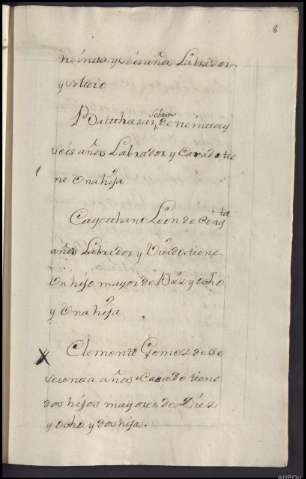 8
neinta y seis años Labrador
y soltero
Balthasar de neinta y
seis años Labrador y Casado tie
ne Una hija
Cayethano Leon de
años Labrador y Viudo tiene
Un hijo mayor de Diez y ocho
y Una hija
Clemente Gomez de se
sesenta años Casado tiene
dos hijos mayores de Diez
y ocho y dos hijas.